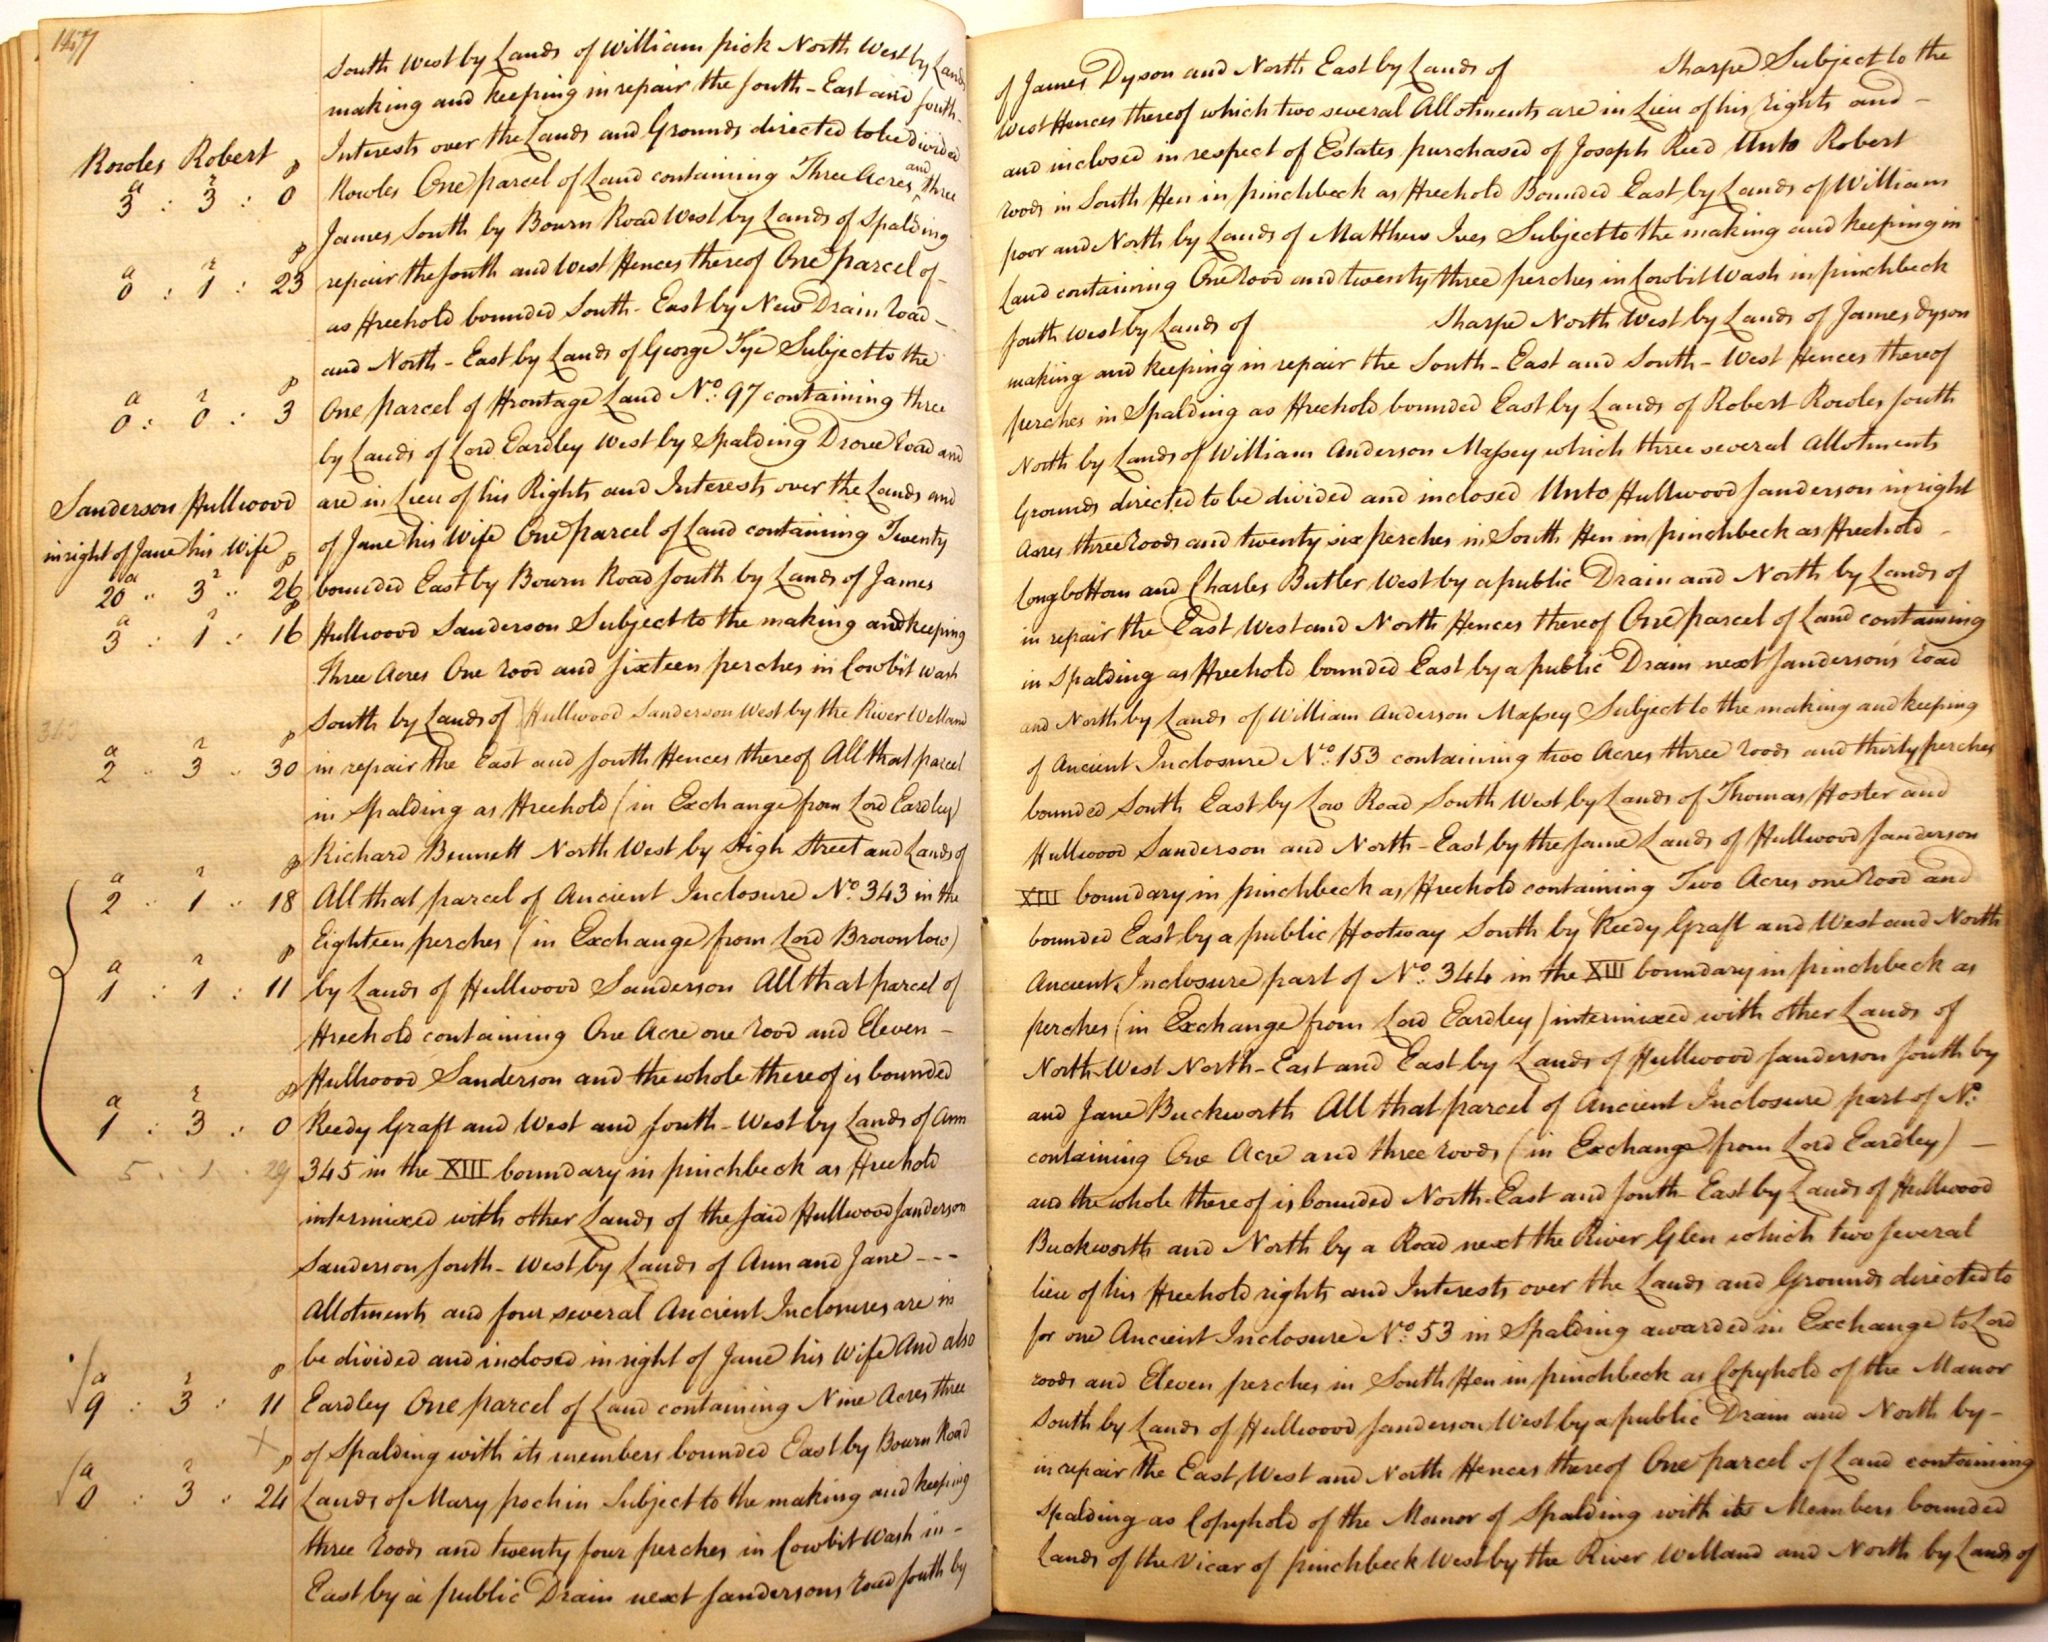 147
South West by Lands of William pick North West by Lands of James Dyson and North East by Lands of Sharpe Subject to the
making and keeping in repair the South-East and South- West Fences thereof which two several Allotments are in Lieu of his rights and -
Interests over the Lands and Grounds directed to be divided and inclosed in respect of Estates purchased of Joseph Reed Unto Robert
Rowles Robert
a r p
3 : 3 : 0
Rowles One parcel of Land containing Three Acres and three roods in South Fen in pinchbeck as Freehold Bounded East by Lands of William
James South by Bourn Road West by Lands of Spalding poor and North by Lands of Matthew Ives Subject to the making and keeping in
a r p
0 : 1 : 23
repair the South and West Fences thereof One parcel of - Land containing One rood and twenty three perches in Cowbit Wash in pinchbeck
as Freehold bounded South-East by New Drain road - South West by Lands of Sharpe North West by Lands of James Dyson
and North-East by Lands of George Tye Subject to the making and keeping in repair the South-East and South-West Fences thereof
a r p
0 : 0 : 3
One parcel of Frontage Land No. 97 containing three perches in Spalding as Freehold bounded East by Lands of Robert Rowles South
by Lands of Lord Eardley West by Spalding Drove road and North by Lands of William Anderson Massey which three several Allotments
Sanderson Hullwood
are in Lieu of his Rights and Interests over the Lands and Grounds directed to be divided and inclosed Unto Hullwood Sanderson in right
in right of Jane his Wife
of Jane his Wife One parcel of Land containing Twenty Acres three roods and twenty six perches in South Fen in pinchbeck as Freehold -
a r p
20 : 3 : 26
bounded East by Bourn Road South by Lands of James Longbottom and Charles Butler West by a public Drain and North by Lands of
a r p
3 : 1 : 16
Hullwood Sanderson Subject to the making and keeping in repair the East West and North Fences thereof One parcel of Land containing
Three Acres One rood and sixteen perches in Cowbit Wash in Spalding as Freehold bounded East by a public Drain next Sandersons road
343
South by Lands of Hullwood Sanderson West by the River Welland and North by Lands of William Anderson Massey Subject to the making and keeping
a r p
2 : 3 : 30
in repair the East and South Fences thereof All that parcel of Ancient Inclosure No. 153 containing two Acres three roods and thirty perches
in Spalding as Freehold (in Exchange from Lord Eardley) bounded South East by Low Road South West by Lands of Thomas Foster and
Richard Bennett North West by High Street and Lands of Hullwood Sanderson and North-East by the same Lands of Hullwood Sanderson
a r p
2 : 1 : 18
All that parcel of Ancient Inclosure No. 343 in the XIII boundary in pinchbeck as Freehold containing Two Acres one rood and
Eighteen perches (in Exchange from Lord Brownlow) bounded East by a public Footway South by Reedy Graft and West and North
a r p
1 : 1 : 11
by Lands of Hullwood Sanderson All that parcel of Ancient Inclosure part of No. 344 in the XIII boundary in pinchbeck as
Freehold containing One Acre one rood and Eleven - perches (in Exchange from Lord Eardley) intermixed with other Lands of
Hullwood Sanderson and the whole thereof is bounded North-West North-East and East by Lands of Hullwood Sanderson South by
a r p
1 : 3 : 0
Reedy Graft and West and South-West by Lands of Ann and Jane Buckworth All that parcel of Ancient Inclosure part of No.
5 : 1 : 29
345 in the XIII boundary in pinchbeck as Freehold containing One Acre and three roods (in Exchange from Lord Eardley) -
intermixed with other Lands of the said Hullwood Sanderson and the whole thereof is bounded North-East and South-East by Lands of Hullwood
Sanderson South-West by Lands of Ann and Jane --- Buckworth and North by a Road next the River Glen which two several
Allotments and four several Ancient Inclosures are in lieu of his Freehold rights and Interests over the Lands and Grounds directed to
be divided and inclosed in right of Jane his Wife And also for one Ancient Inclosure No. 53 in Spalding awarded in Exchange to Lord
a r p
9 : 3 : 11
Eardley One parcel of Land containing Nine Acres three roods and Eleven perches in South Fen in pinchbeck as Copyhold of the Manor
of Spalding with its members bounded East by Bourn Road South by Lands of Hullwood Sanderson West by a public Drain and North by -
a r p
0 : 3 : 24
Lands of Mary pochin Subject to the making and keeping in repair the East, West and North Fences thereof One parcel of Land containing
three roods and twenty four perches in Cowbit Wash in - Spalding as Copyhold of the Manor of Spalding with its Members bounded
East by a public Drain next Sandersons road South by Lands of the Vicar of pinchbeck West by the River Welland and North by Lands of